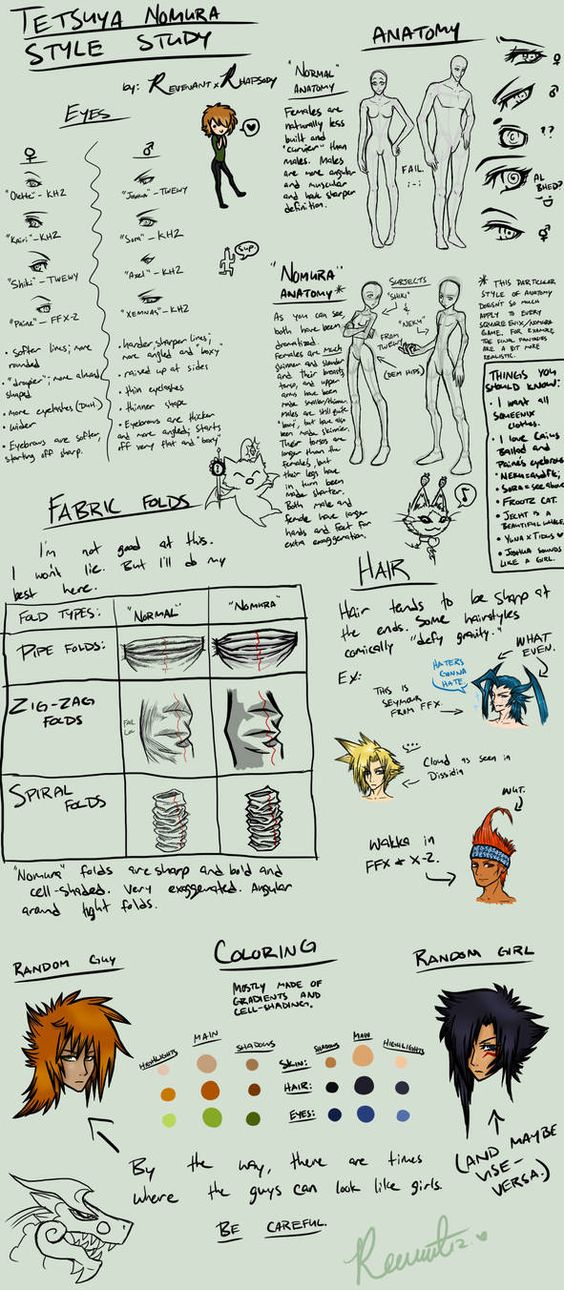 TETSUYA NOMURA
STYLE STUDY
by: REVENANTxRHAPSODY
EYES
♀
♂
"Olette" - KH2
"Kairi" - KH2
"Shiki" - TWEWY
"Paine" - FFX-2
"Joshua" - TWEWY
"Sora" - KH2
"Axel" - KH2
"XEMNAS" - KH2
SUP
• Softer lines; more
rounded
• more eyelashes (Duh.)
• Wider
• Eyebrows are softer,
starting off sharp.
• harder sharper lines;
more angled and boxy
• raised up at sides
• thin eyelashes
• thinner shape
• Eyebrows are thicker
and more angled; starts
off very flat and "boxy"
ANATOMY
"NORMAL"
ANATOMY
Females are
naturally less
built and
"curvier" than
males. Males
are more angular
and muscular
and have sharper
definition.
FAIL.
;-;
♀
♂
??
AL
BHED?
♂
"NOMURA"
ANATOMY*
As you can see,
both have been
dramatized.
Females are much
skinnier and slender
and their breasts,
torso, and upper
arms have been
made smaller/thinner.
males are still quite
"boxy", but have also
been made skinnier.
Their torsos are
longer than the
females', but
their legs have
in turn been
made shorter.
Both male and
female have larger
hands and feet for
extra exaggeration.
SUBJECTS
"SHIKI"
&
"NEKU"
FROM
TWEWY
(DEM HIPS)
* THIS PARTICULAR
STYLE OF ANATOMY
DOESN'T SO MUCH
APPLY TO EVERY
SQUARE ENIX/NOMURA
GAME. FOR EXAMPLE,
THE FINAL FANTASIES
ARE A BIT MORE
REALISTIC.
THINGS YOU
SHOULD KNOW:
• I want all
SQUEENIX
clothes.
• I love Caius
Ballad and
Paine's eyebrows
• SORA = see above
• FROOTZ CAT.
• JECHT IS A
BEAUTIFUL WHALE
• YUNA x TIDUS ♥
• JOSHUA SOUNDS
LIKE A GIRL.
FABRIC FOLDS
I'm not good at this.
I won't lie. But I'll do my
best here.
FOLD TYPES:
"NORMAL"
"NOMURA"
PIPE FOLDS:
ZIG-ZAG
FOLDS
FAIL
LOL
SPIRAL
FOLDS
"Nomura" folds are sharp and bold and
cell-shaded. Very exaggerated. Angular
around tight folds.
HAIR
Hair tends to be sharp at
the ends. Some hairstyles
comically "defy gravity."
EX:
HATERS
GONNA
HATE.
WHAT
EVEN.
THIS IS
SEYMOUR
FROM FFX.
...
Cloud as seen in
Dissidia
WUT.
Wakka in
FFX & X-2.
COLORING
MOSTLY MADE OF
GRADIENTS AND
CELL-SHADING.
RANDOM GUY
RANDOM GIRL
HIGHLIGHTS
MAIN
SHADOWS
SHADOWS
MAIN
HIGHLIGHTS
SKIN:
HAIR:
EYES:
By the way, there are times
where the guys can look like girls.
BE CAREFUL.
(AND MAYBE
VISE-
VERSA.)